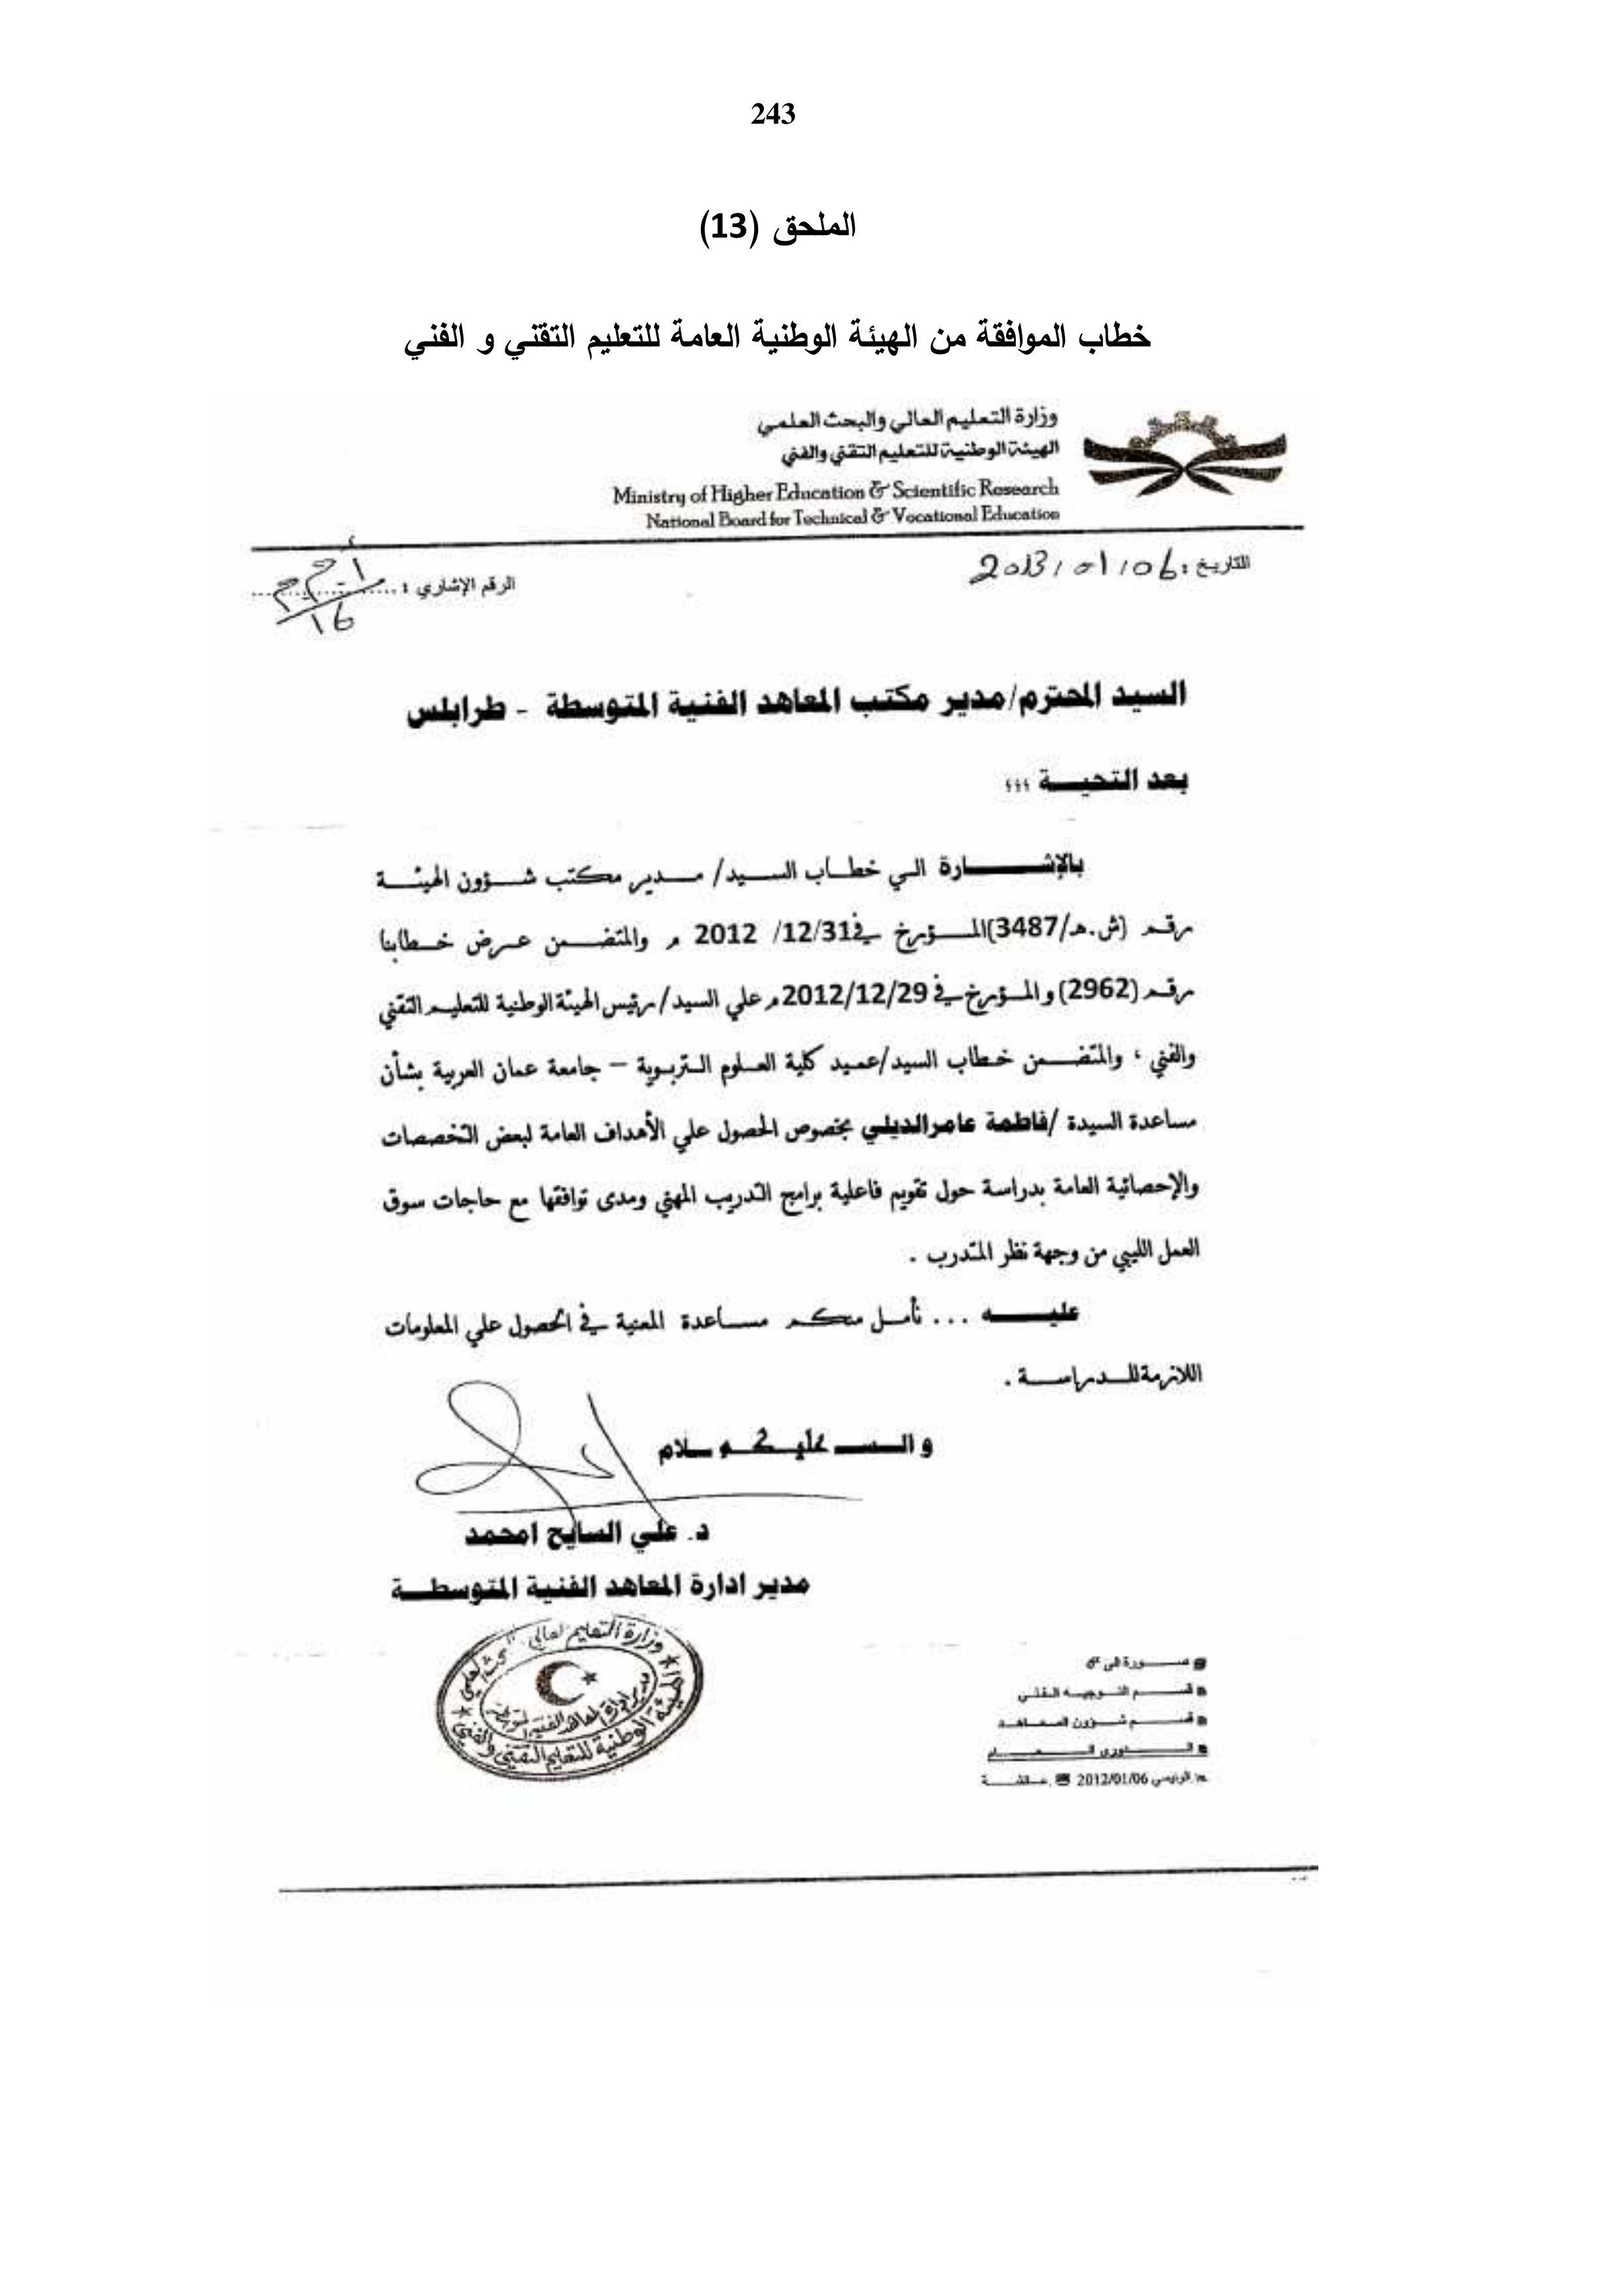 243
الملحق (13)
خطاب الموافقة من الهيئة الوطنية العامة للتعليم التقني و الفني
وزارة التعليم العالي والبحث العلمي
الهيئة الوطنية للتعليم التقني والفني
Ministry of Higher Education & Scientific Research
National Board for Technical & Vocational Education
التاريخ : 2013/01/06
الرقم الإشاري :
السيد المحترم/مدير مكتب المعاهد الفنية المتوسطة - طرابلس
بعد التحيـــة ؛؛؛
بالإشـــــارة الي خطـاب السـيد/ مـــدير مكتب شـــؤون الهيئــة
رقـم (ش.هـ/3487)المـــؤرخ في12/31/ 2012 م والمتضـــمن عـرض خـطابنا
رقـم (2962) والمـؤرخ في 2012/12/29م علي السيد/رئيس الهيئة الوطنية للتعليـم التقني
والفني ، والمتضـــمن خـطاب السيد/عميد كلية العـلوم التربـوية – جامعة عمان العربية بشأن
مساعدة السيدة /فاطمة عامر الديلي بخصوص الحصول علي الأهداف العامة لبعض التخصصات
والإحصائية العامة بدراسة حول تقويم فاعلية برامج التدريب المهني ومدى توافقها مع حاجات سوق
العمل الليبي من وجهة نظر المتدرب .
عليـــــه ... نأمـل منكـم مســاعدة المعنية في الحصول علي المعلومات
اللازمة للـــدراســـة .
و الســـ عليـكـم ـــلام
د. علي السايح امحمد
مدير ادارة المعاهد الفنية المتوسطـــة
وزارة التعليم العالي والبحث العلمي
الهيئة الوطنية للتعليم التقني والفني
مدير إدارة المعاهد الفنية المتوسطة
صـــــورة الى
قســـــم التـــوجيـــه الـفني
قســـــم شـــؤون المـــعـــاهـــد
الـــــــدوري الـــــــعـــــــام
2012/01/06